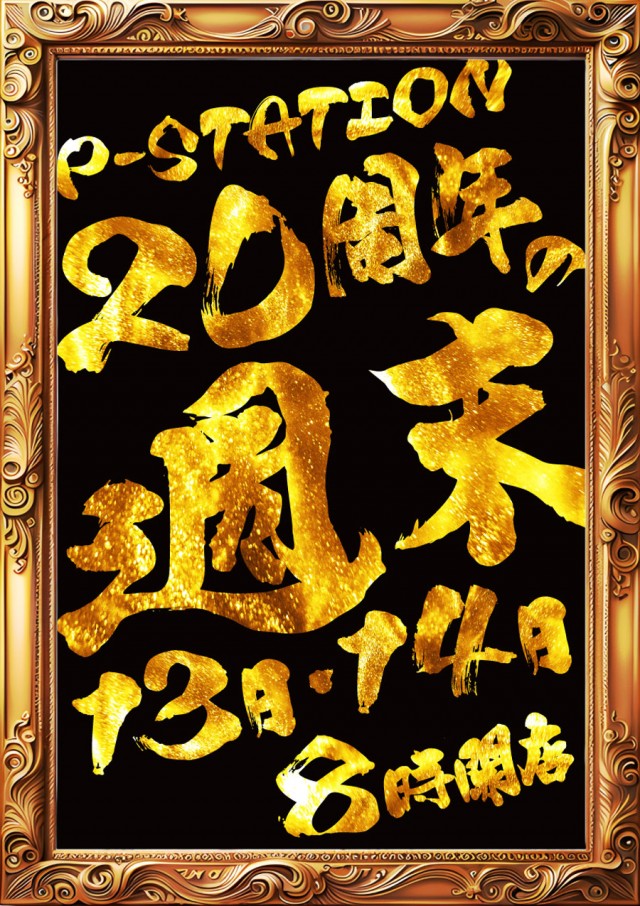 P-STATION
20周年の
週末
13日・14日
8時開店